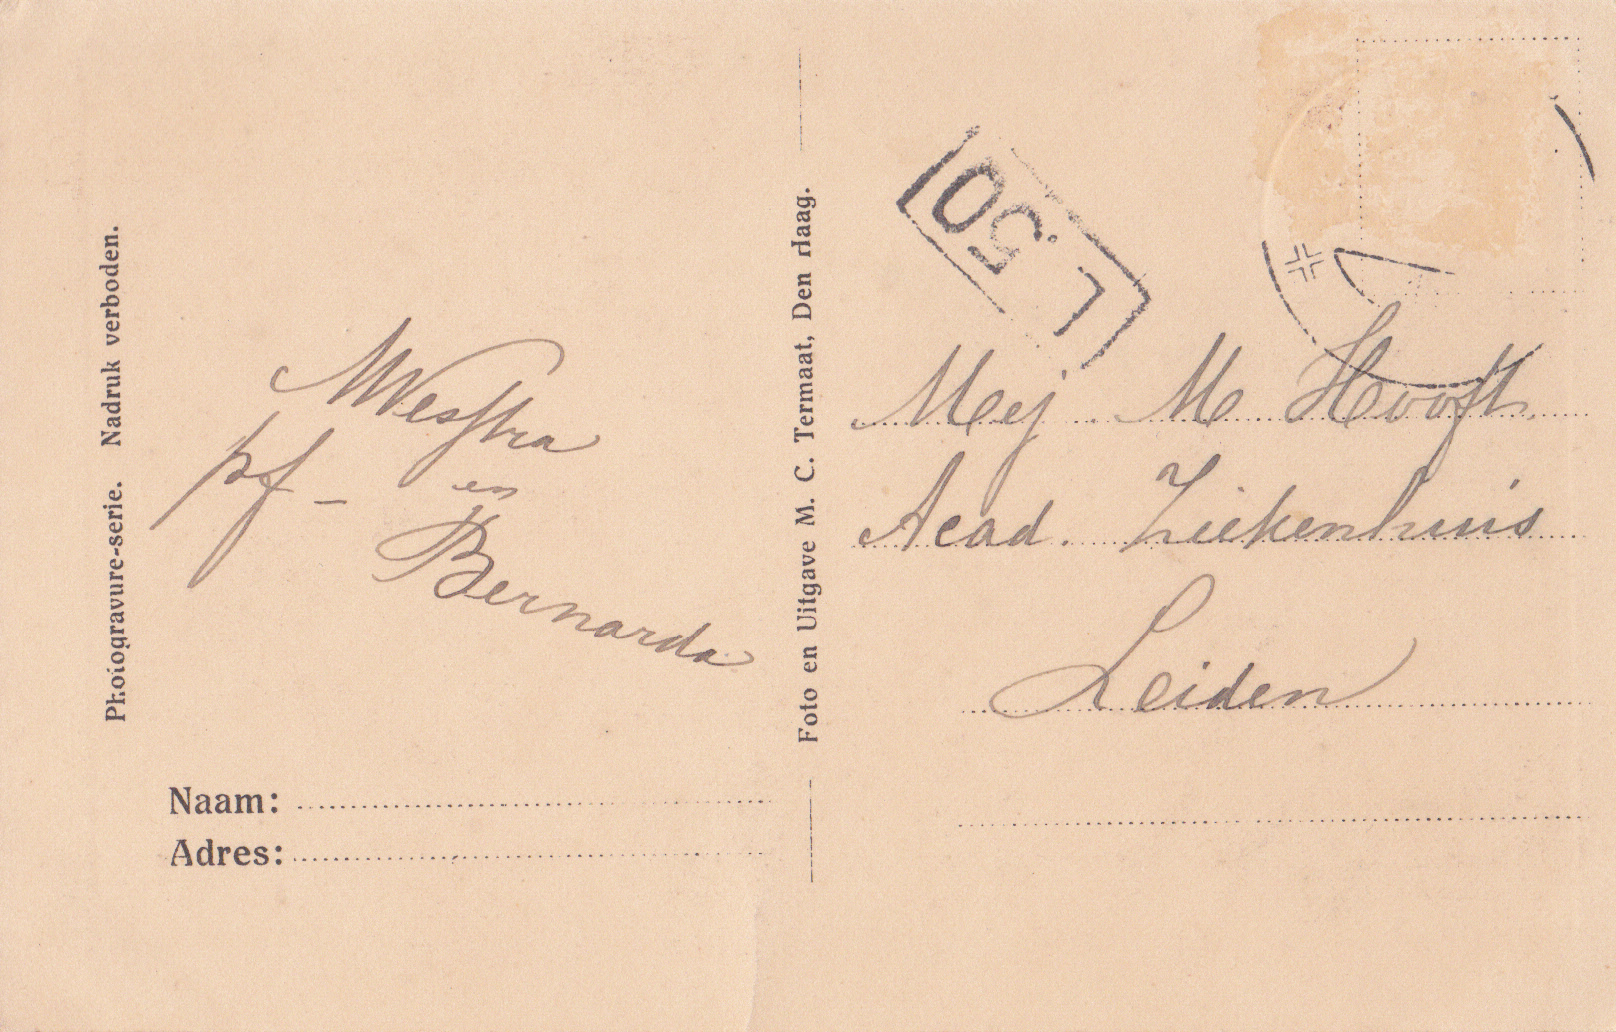 Photogravure-serie. Nadruk verboden.
MWestra
pf -
en
Bernarda
Naam:
Adres:
Foto en Uitgave M. C. Termaat, Den Haag.
L.50
Mej. M Hooft
Acad. Ziekenhuis
Leiden